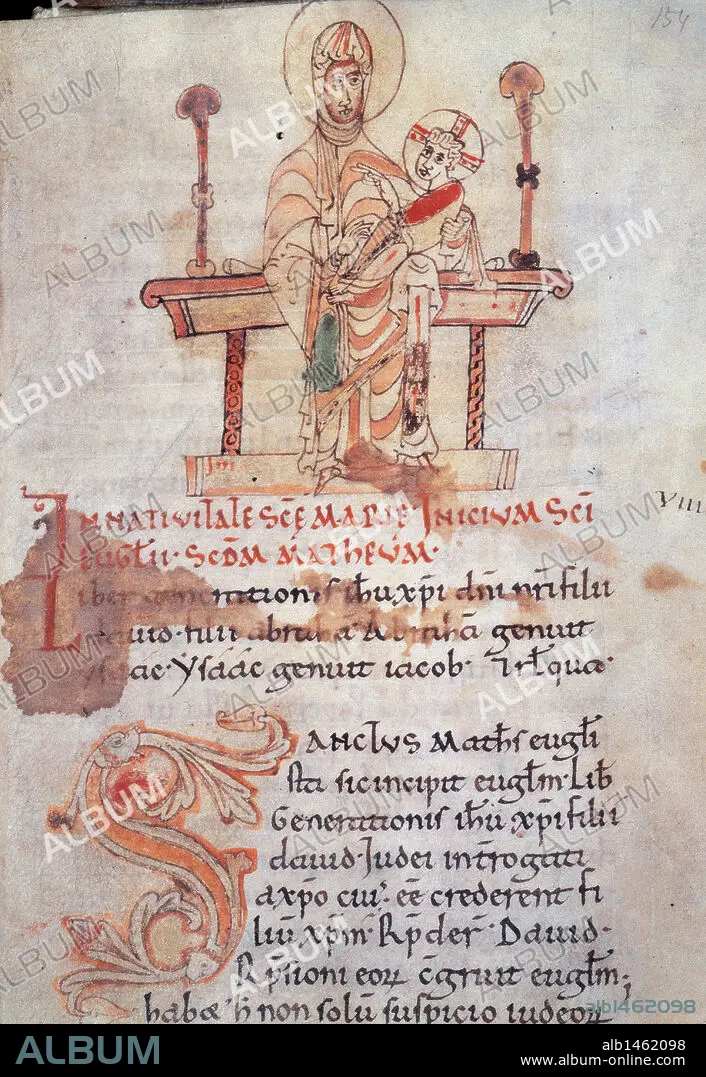 154
IN NATIVITATE SCE MARIE INICIUM SCI
EUGLII SCDM MATHEUM
Yiii
Liber generationis ihu xpi dni nri filii
dauid filii abraha Abraha genuit
ysaac ysaac genuit iacob
SANCTUS Maths eugli
sta sic incipit euglm Lib
Generationis ihu xpi filii
dauid Iudei introgati
a xpo cui' ee crederent fi
liu xpm Rpder Dauid
Rpsioni eor cgruit euglm
habae h non solu suspicio iudeor
ALBUM
alb1462098
ALBUM
alb1462098
www.album-online.com